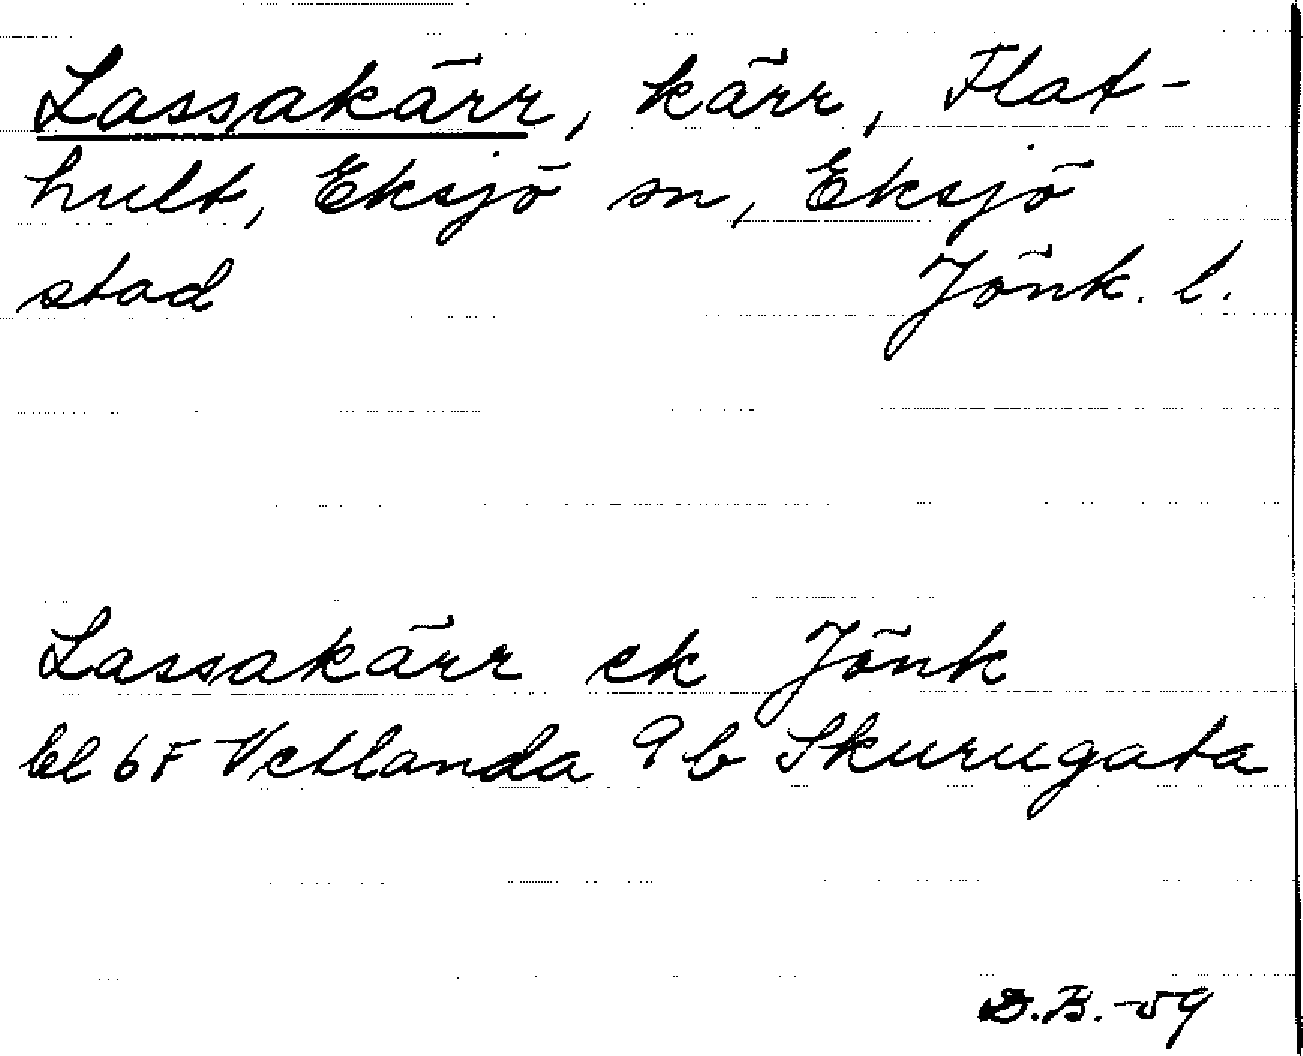 Lassakärr, kärr, Flat-
hult, Eksjö sn, Eksjö
stad Jönk. l.
Lassakärr ek Jönk
bl 6F Vetlanda 9b Skurugata
D.B.-59